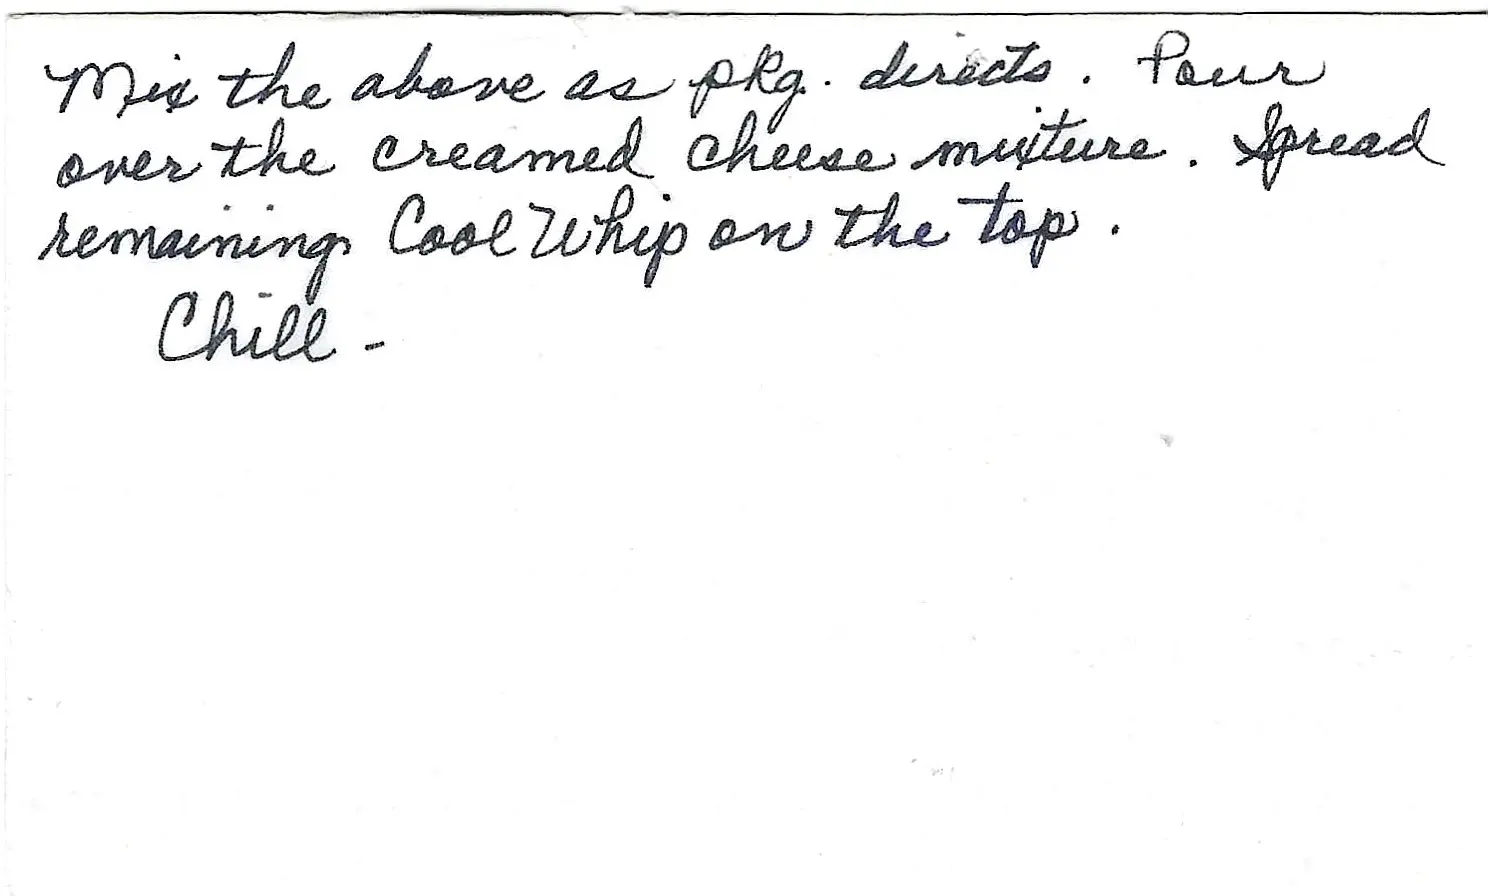 Mix the above as pkg. directs. Pour
over the creamed cheese mixture. Spread
remaining Cool Whip on the top.
Chill -